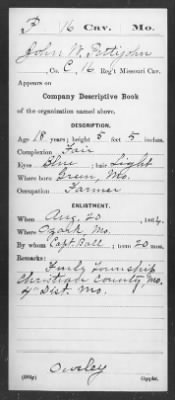 P 16 Cav. Mo.
John W. Pettijohn
, Co. C, 16 Reg't Missouri Cav.
Appears on
Company Descriptive Book
of the organization named above.
DESCRIPTION.
Age 18 years; height 5 feet 5 inches.
Complexion Fair
Eyes Blue ; hair Light
Where born Green, Mo.
Occupation Farmer
ENLISTMENT.
When Aug. 20 , 1864.
Where Ozark Mo.
By whom Capt. Ball ; term 20 mos.
Remarks:
Township
Christian County Mo.
4th Dist. Mo.
Owsley
Copyist.